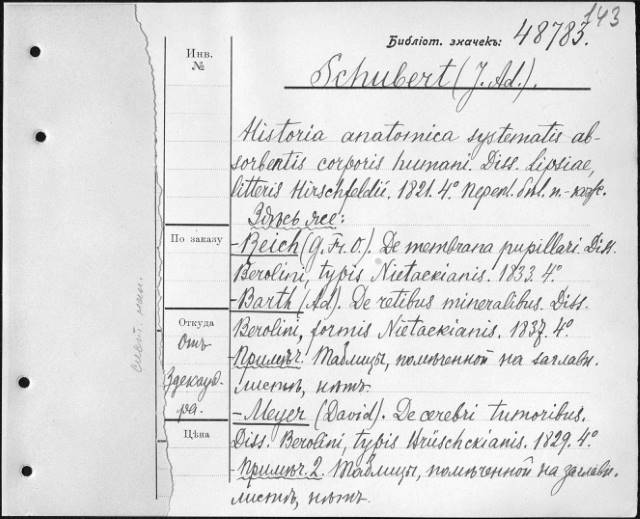 143
Библіот. значекъ: 48783.
Инв. №
Schubert (J. Ad.).
Historia anatomica systematis ab-
sorbentis corporis humani. Diss. Lipsiae,
litteris Hirschfeldii. 1821. 4°. Перепл. бѣл. п.-кож.
Здѣсь же:
По заказу
- Reich (G. Fr. O.). De membrana pupillari. Diss.
Berolini, typis Nietackianis. 1833. 4°
- Barth (Ad). De retibus mineralibus. Diss.
Откуда
Berolini, formis Nietackianis. 1837. 4°
отъ
- Примѣч. Таблицы, помѣченной на заглавн.
Здекауэ-
ра.
листѣ, нѣтъ.
- Meyer (David). De cerebri tumoribus.
Цѣна
Diss. Berolini, typis Brüschckianis. 1829. 4°
- Примѣч. 2. Таблицы, помѣченной на заглавн.
листѣ, нѣтъ.